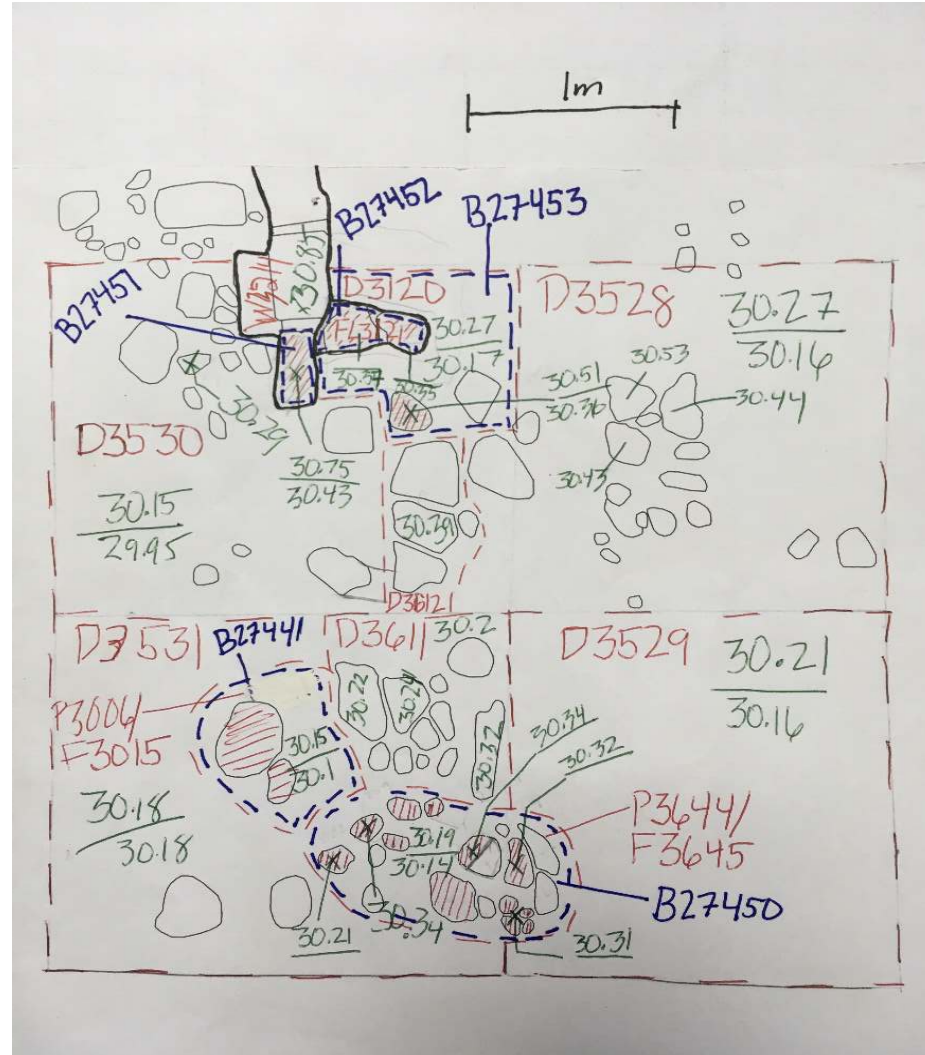 1m
B27452
B27453
B27451
W3211
x30.85
D3120
F3121
30.27
30.17
30.37
30.35
D3528
30.27
30.16
30.53
30.51
30.36
30.44
30.43
30.29
D3530
30.15
29.95
30.75
30.43
30.39
D3612
D3531
B27441
D3611
30.2
D3529
30.21
30.16
P3006/
F3015
30.22
30.24
30.32
30.34
30.32
30.15
30.1
30.18
30.18
30.19
30.14
P3644/
F3645
B27450
30.21
30.34
30.31